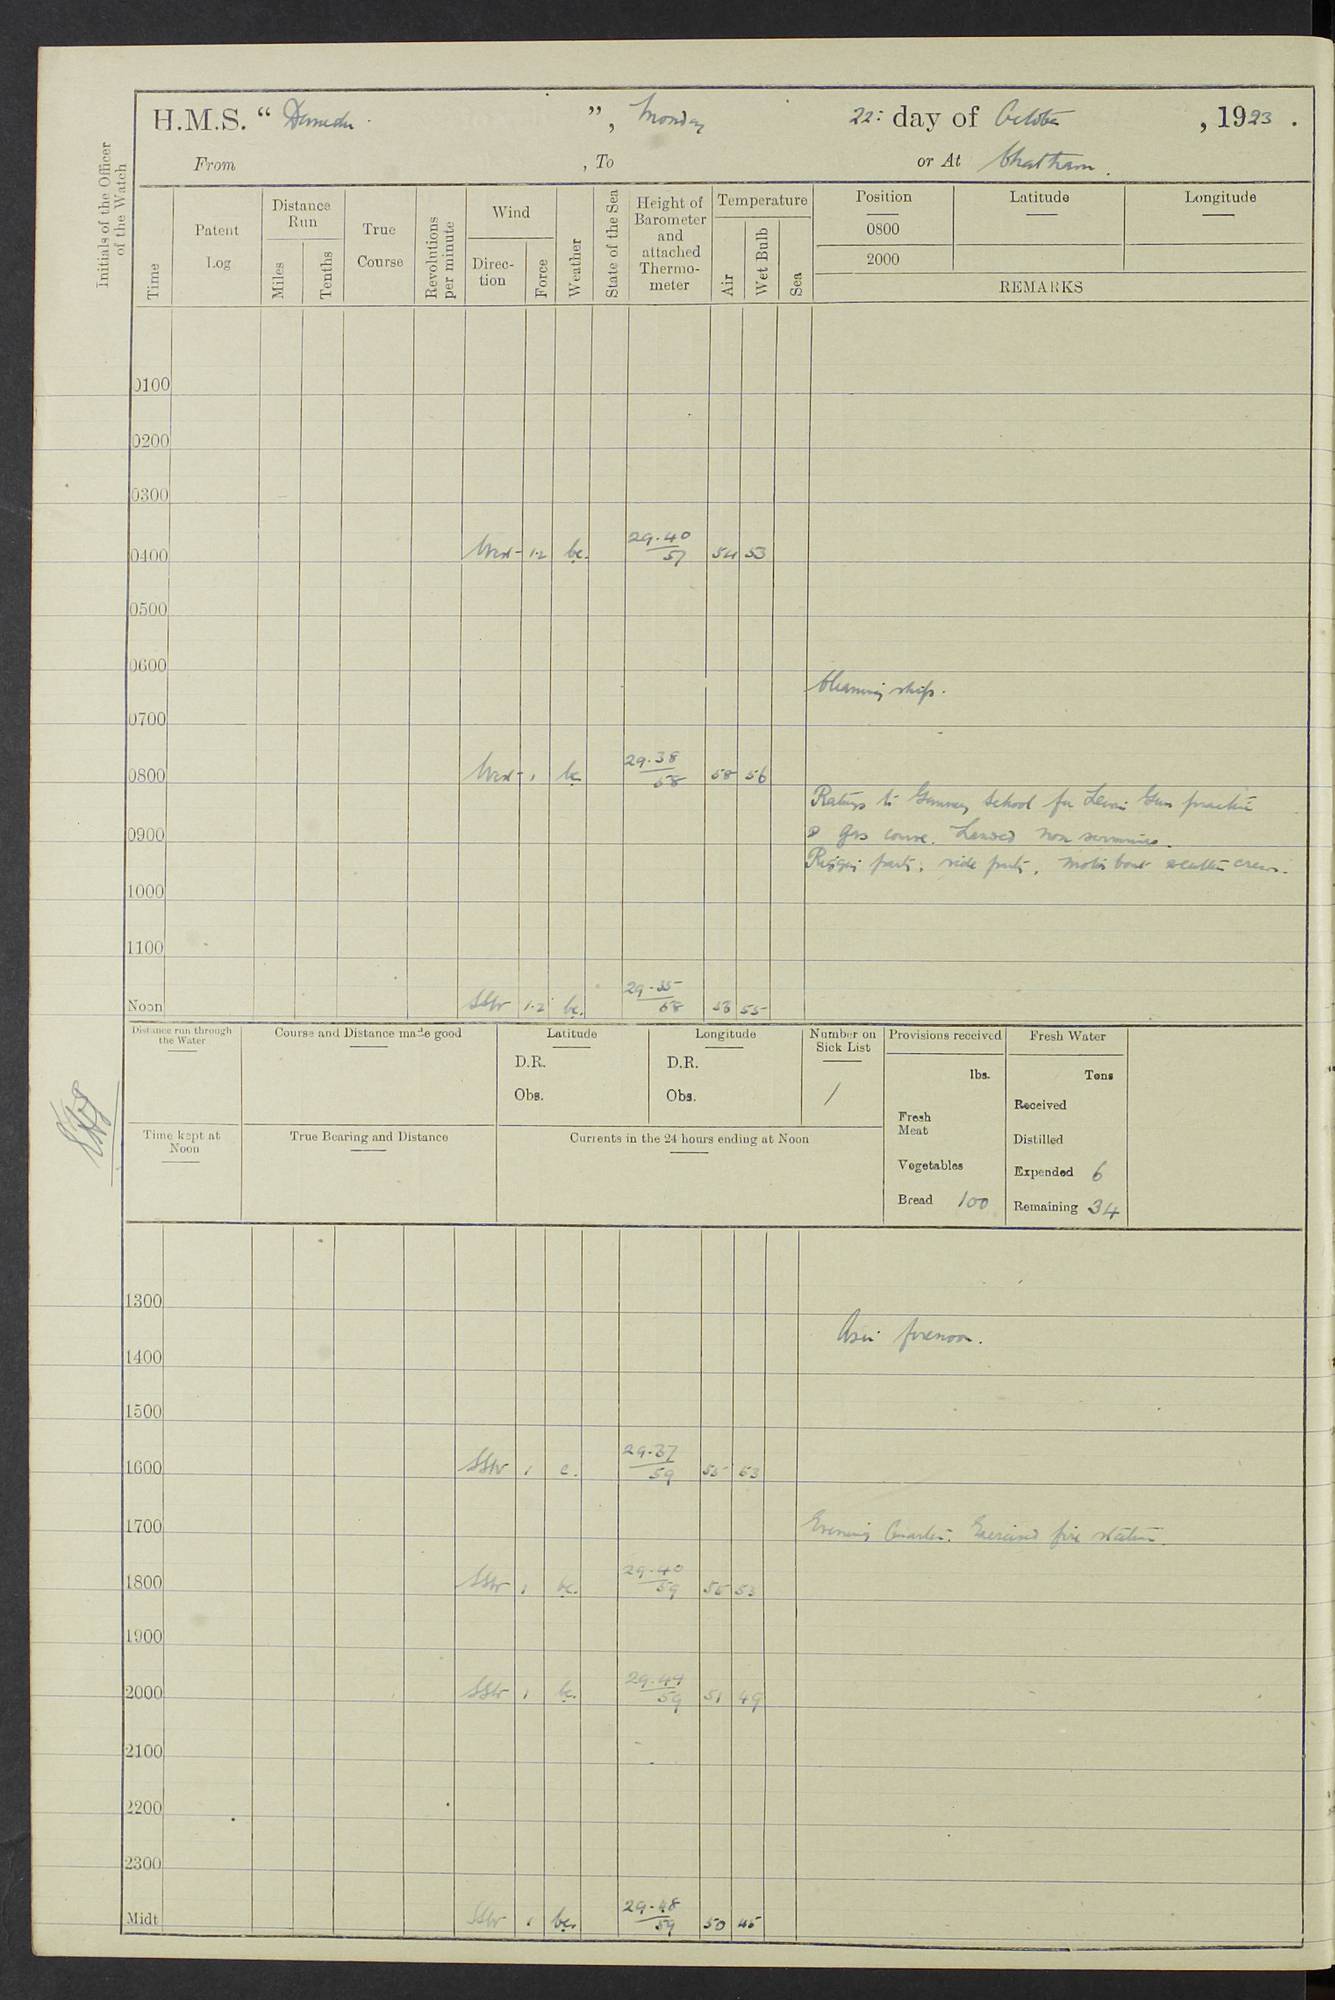 H.M.S. " ", Monday 22: day of October, 1923.
From , To or At Chatham.
Initials of the Officer of the Watch
Time
Patent Log
Distance Run
Miles
Tenths
True Course
Revolutions per minute
Wind
Direction
Force
Weather
State of the Sea
Height of Barometer and attached Thermometer
Temperature
Air
Wet Bulb
Sea
Position
Latitude
Longitude
0800
2000
REMARKS
0100
0200
0300
0400 West 1.2 bc. 29.40 57 54 53
0500
0600
Cleaning ship.
0700
0800 West 1 bc 29.38 58 58 56
Ratings to Gunnery School for Lewis Gun practice
0900 & gas course. Landed non swimmers.
Rigging party, side party, motor boat & cutters crews.
1000
1100
Noon SSW 1.2 bc. 29.35 58 55
Distance run through the Water
Course and Distance made good
Latitude
D.R.
Obs.
Longitude
D.R.
Obs.
Number on Sick List
1
Provisions received
lbs.
Fresh Meat
Vegetables
Bread 100
Fresh Water
Tons
Received
Distilled
Expended 6
Remaining 34
Time kept at Noon
True Bearing and Distance
Currents in the 24 hours ending at Noon
1300
As in forenoon.
1400
1500
1600 SSW 1 c. 29.37 59 55 53
1700 Evening Quarters. Exercised fire stations.
1800 SSW 1 bc. 29.40 59 55 53
1900
2000 SSW 1 bc. 29.44 59 51 49
2100
2200
2300
Midt SSW 1 bc. 29.48 59 50 45